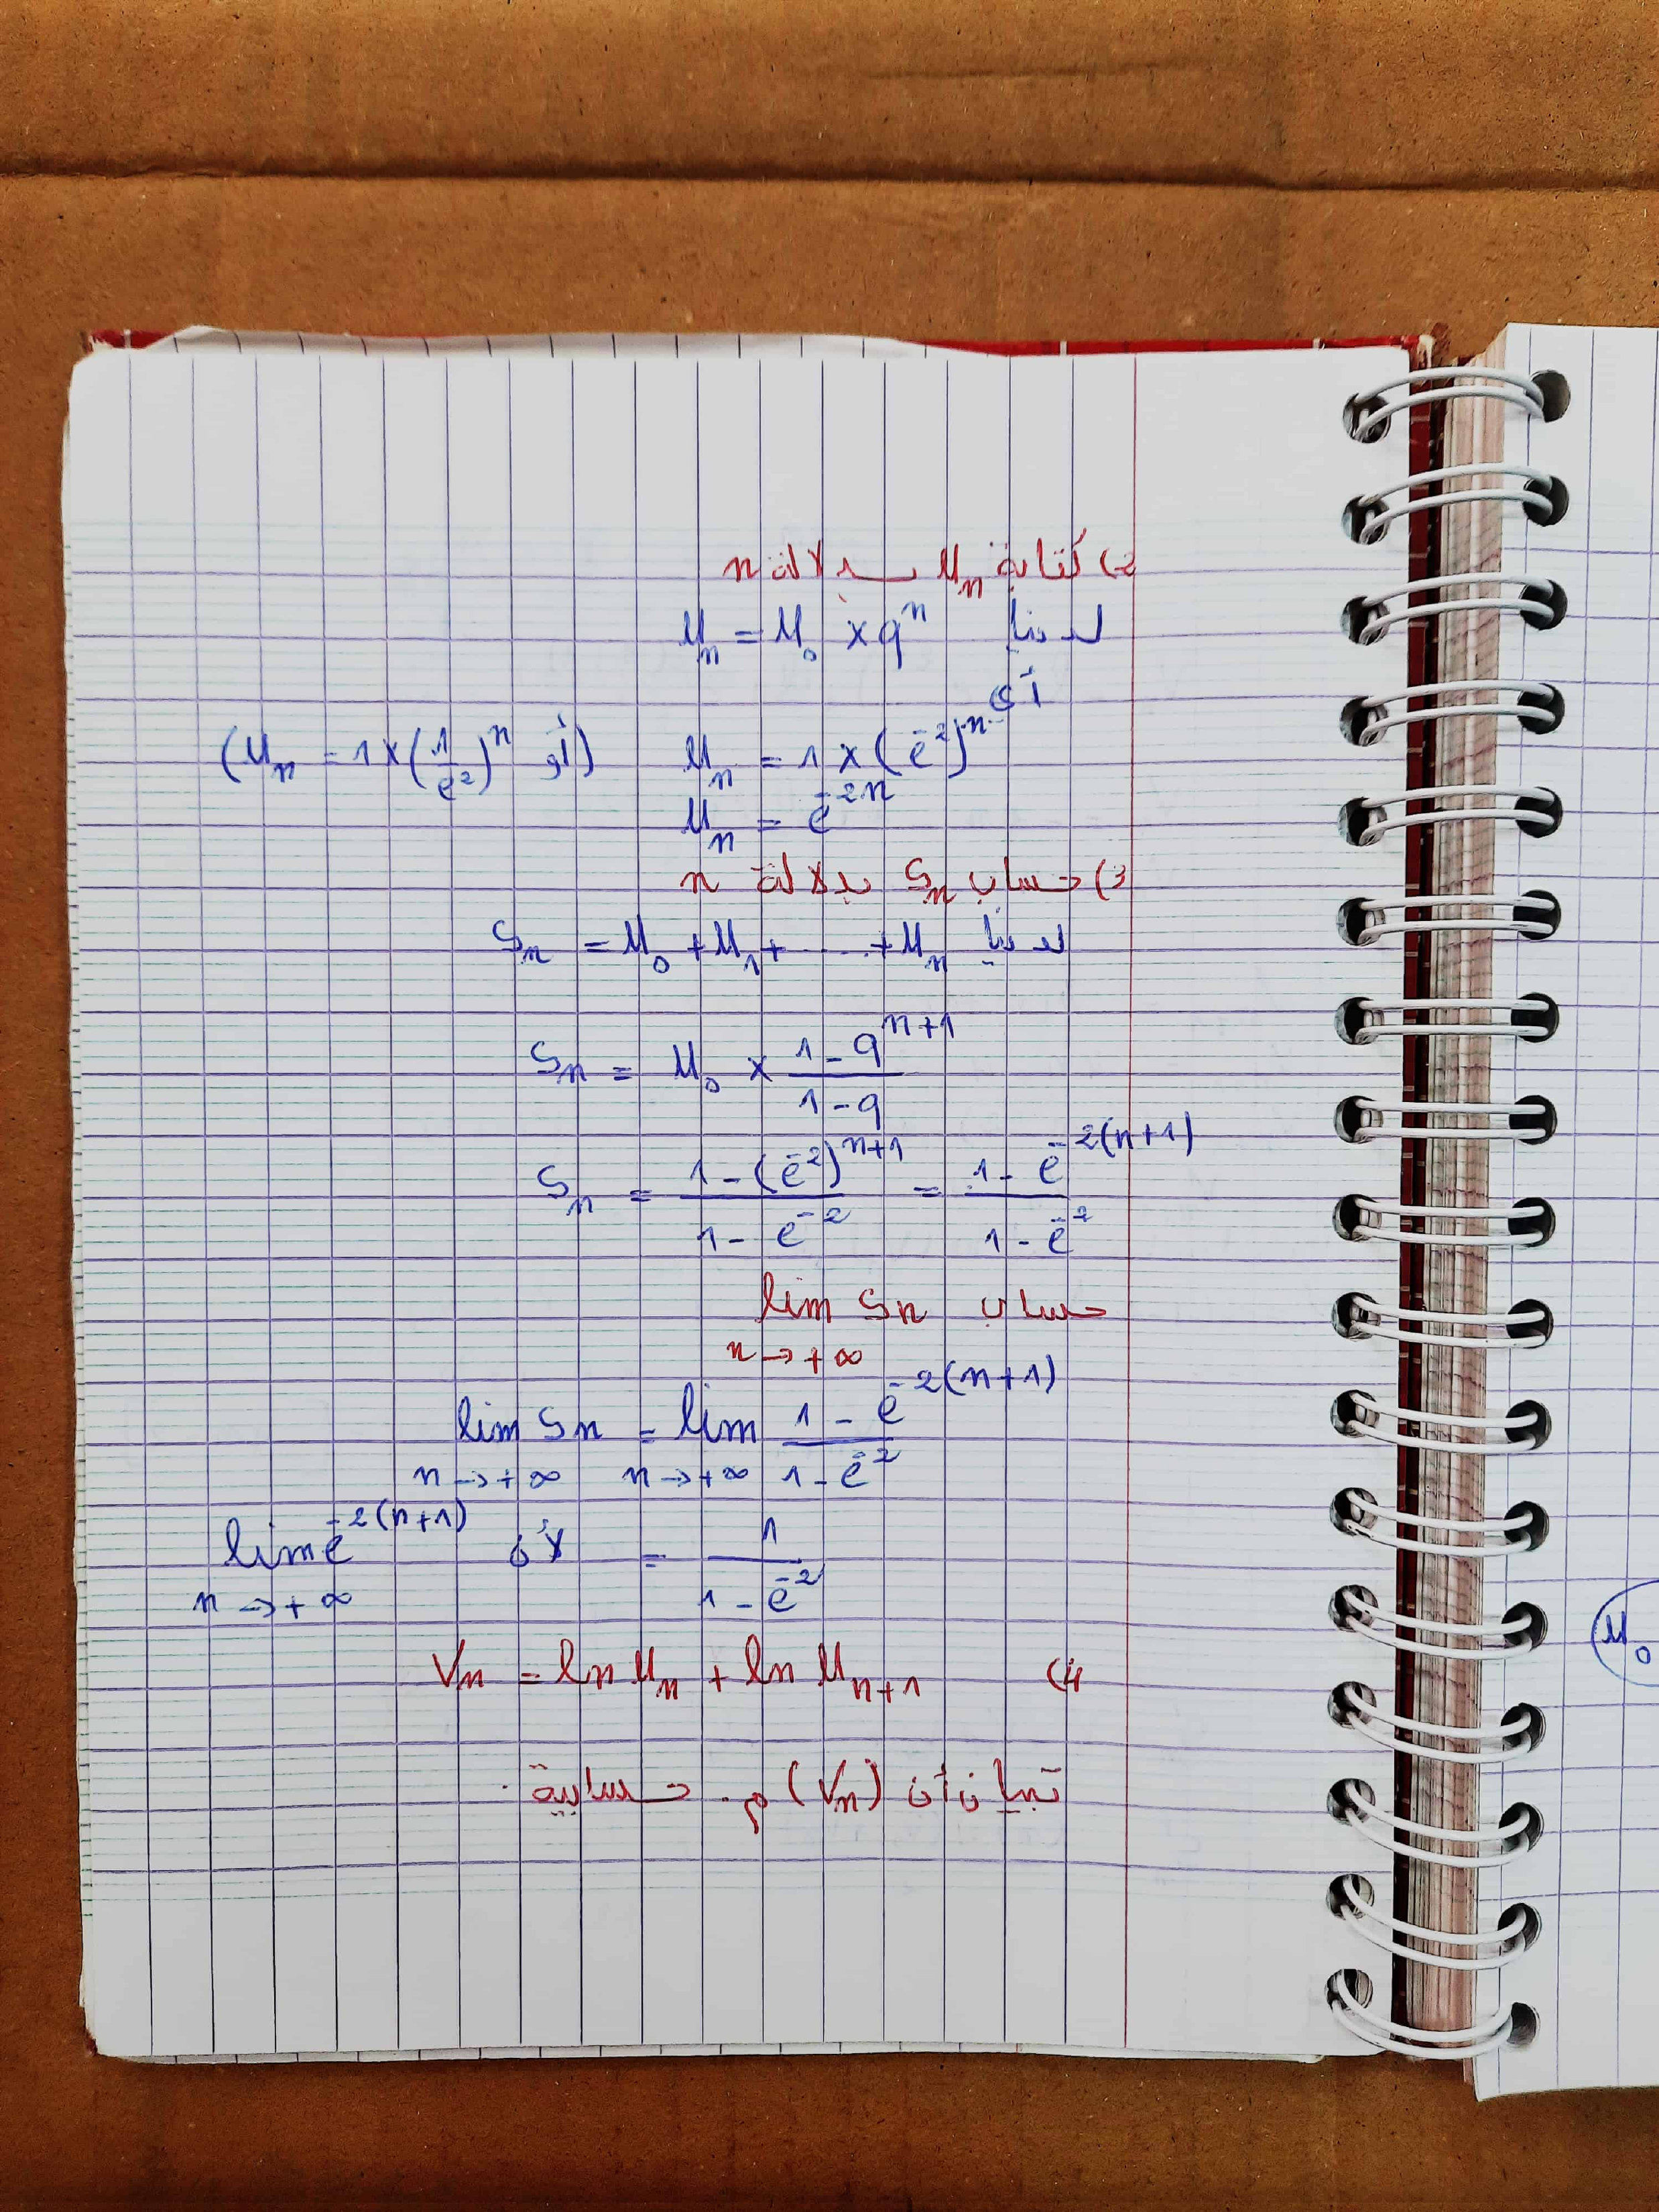 2) كتابة Uₙ بدلالة n
لدينا Uₙ = U₀ × qⁿ
أي
Uₙ = 1 × (e⁻²)ⁿ (أو Uₙ = 1 × (1/e²)ⁿ)
Uₙ = e⁻²ⁿ
3) حساب Sₙ بدلالة n
لدينا Sₙ = U₀ + U₁ + ..... + Uₙ
Sₙ = U₀ × (1 - qⁿ⁺¹)/(1 - q)
Sₙ = (1 - (e⁻²)ⁿ⁺¹)/(1 - e⁻²) = (1 - e⁻²⁽ⁿ⁺¹⁾)/(1 - e⁻²)
حساب lim Sn
n → +∞
lim Sn = lim (1 - e⁻²⁽ⁿ⁺¹⁾)/(1 - e⁻²)
n → +∞ n → +∞
= 1/(1 - e⁻²) لأن lim e⁻²⁽ⁿ⁺¹⁾
n → +∞
4) Vₙ = ln Uₙ + ln Uₙ₊₁
تبيان أن (Vₙ) م. حسابية.
U₀